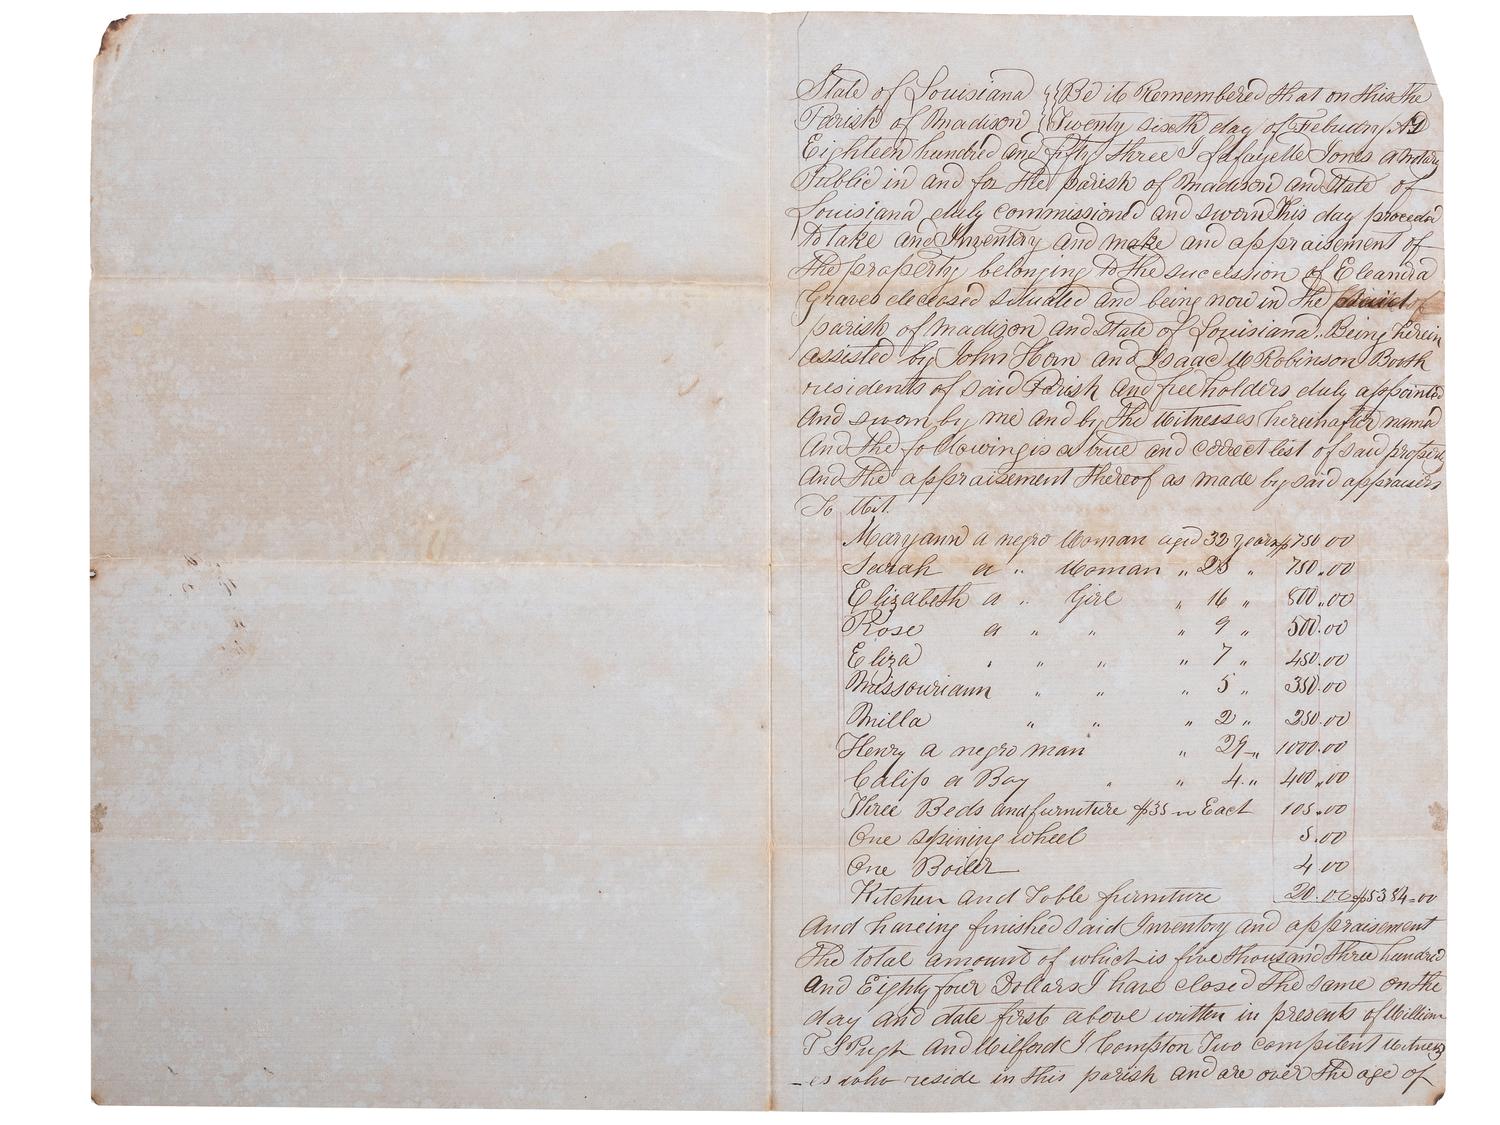 State of Louisiana }{ Be it Remembered that on this the
Parish of Madison }{ Twenty sixth day of Febuary AD
Eighteen hundred and fifty three I Lafayette Jones a notary
Public in and for the parish of Madison and State of
Louisiana duly commissioned and sworn This day proceeded
to take and Inventory and make and appraisement of
the property belonging to the succession of Eleandra
Graves deceased situated and being now in the
parish of Madison and State of Louisiana. Being herein
assisted by John Horn and Isaac W Robinson Both
residents of said Parish and freeholders duly appointed
and sworn by me and by the Witnesses hereinafter named
And the following is a true and correct list of said property
And the appraisement thereof as made by said appraisers
To Wit.
Maryann a negro Woman aged 32 years $750.00
Sarah a " Woman " 25 " 750.00
Elizabeth a " Girl " 16 " 800.00
Rose a " " " 9 " 500.00
Eliza " " " " 7 " 450.00
Missouriann " " " 5 " 350.00
Milla " " " 2 " 250.00
Henry a negro man " 29 " 1000.00
Calip a Boy " " 4 " 400.00
Three Beds and furniture $35 Each 105.00
One spining wheel 5.00
One Boiler 4.00
Kitchen and Table furniture 20.00 $5384=00
And haveing finished said Inventory and appraisement
The total amount of which is five thousand three hundred
and Eighty four Dollars I have closed the same on the
day and date first above written in presents of William
T S Pugh and Wilford J Compton Two competent witness
-es who reside in this parish and are over the age of